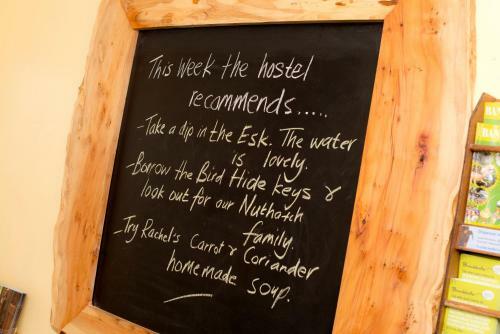 This Week the hostel
recommends.....
-Take a dip in the Esk. The water
is lovely.
-Borrow the Bird Hide keys &
look out for our Nuthatch
family.
-Try Rachel's Carrot & Coriander
homemade soup.